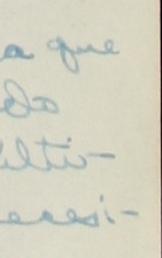 a que
do
ulti-
neresi-